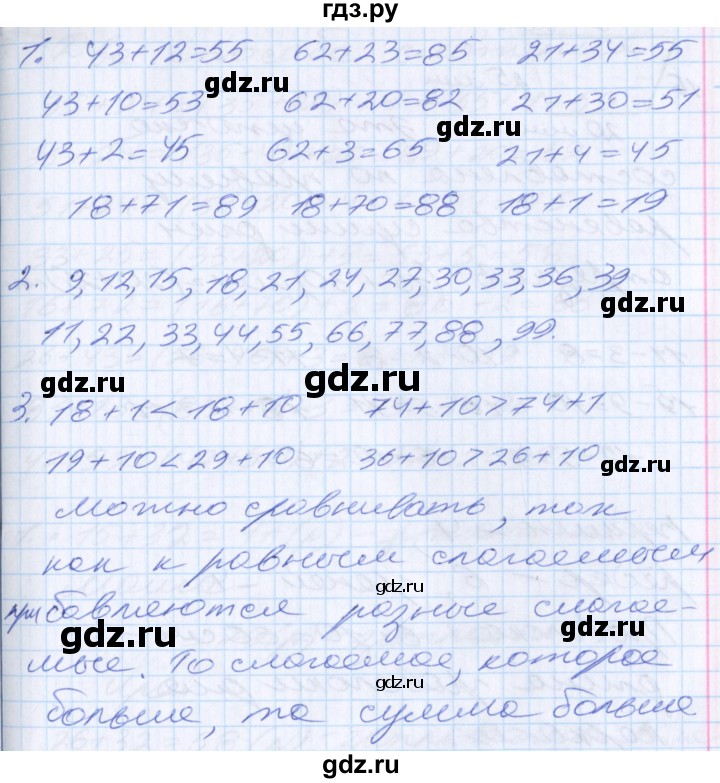 гдз.ру
1. 43+12=55 62+23=85 21+34=55
gdz.ru
43+10=53 62+20=82 21+30=51
gdz.ru
43+2=45 62+3=65 21+4=45
18+71=89 18+70=88 18+1=19
2. 9, 12, 15, 18, 21, 24, 27, 30, 33, 36, 39
gdz.ru
11, 22, 33, 44, 55, 66, 77, 88, 99.
gdz.ru gdz.ru
3. 18+1<18+10 74+10>74+1
19+10<29+10 36+10>26+10
gdz.ru
Можно сравнивать, так
как к равным слагаемым
gdz.ru
прибавляются разные слагае-
gdz.ru gdz.ru
мые. То слагаемое, которое
gdz.ru
больше, та сумма больше